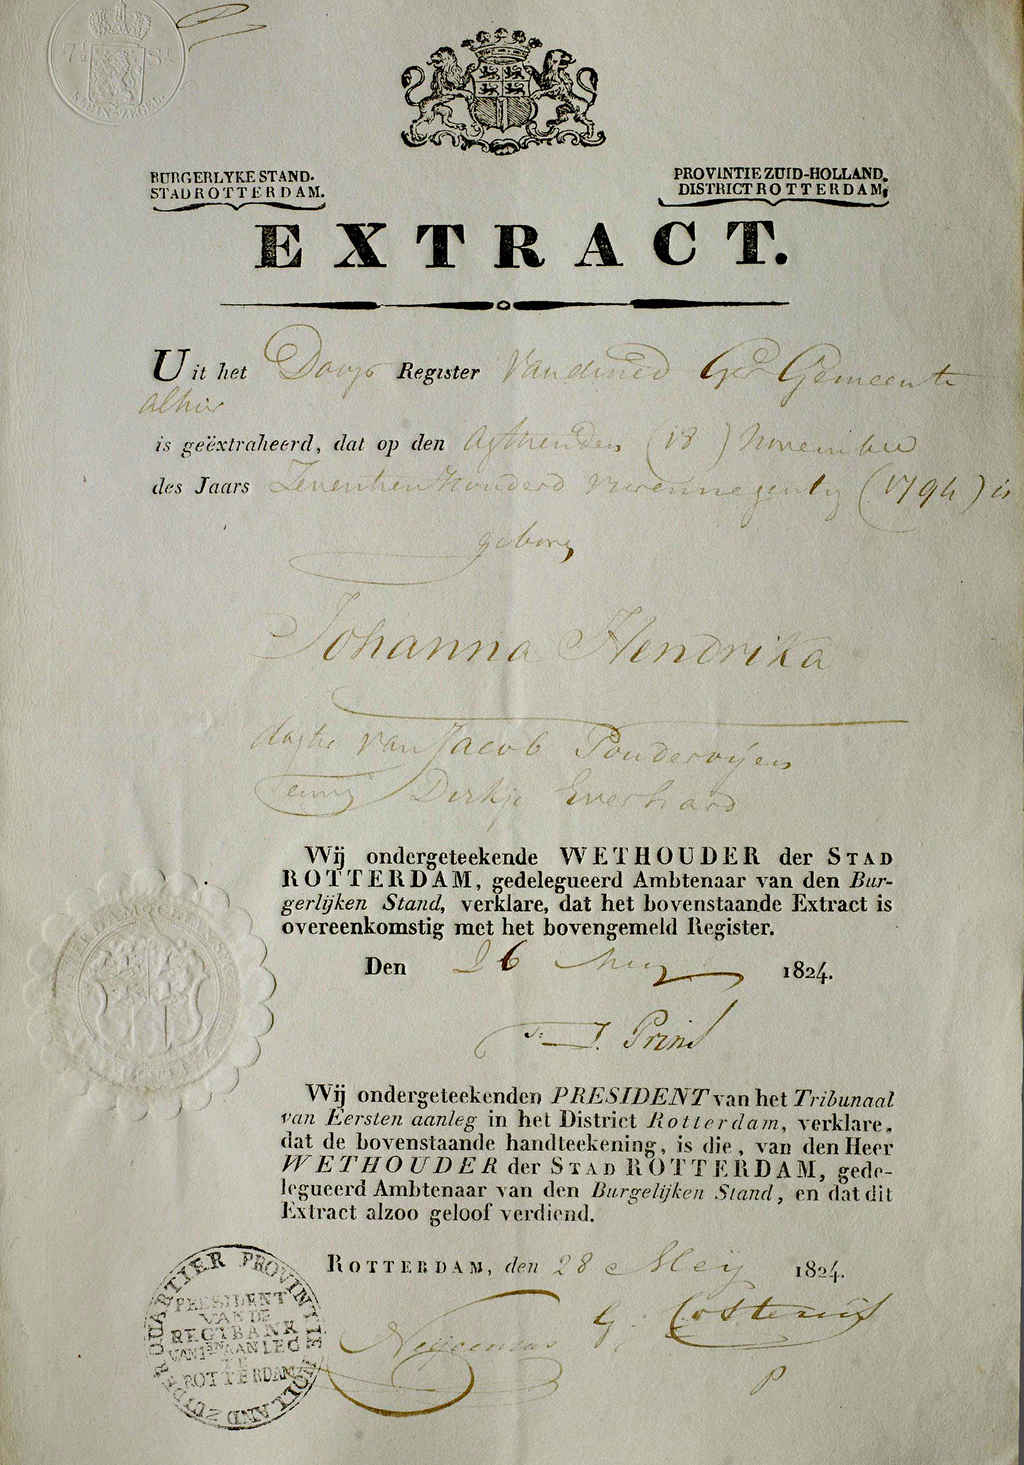 BURGERLYKE STAND.
STAD ROTTERDAM.
PROVINTIE ZUID-HOLLAND,
DISTRICT ROTTERDAM,
EXTRACT.
Uit het Doop Register van de Ned Ger Gemeente
alhier
is geëxtraheerd, dat op den Agttienden (18) November
des Jaars Zeventienhonderd vierennegentig (1794) is
geboren
Johanna Hendrika
dogter van Jacob Pouderoijen
en Dirkje Everhard
Wij ondergeteekende WETHOUDER der STAD
ROTTERDAM, gedelegueerd Ambtenaar van den Bur-
gerlijken Stand, verklare, dat het bovenstaande Extract is
overeenkomstig met het bovengemeld Register.
Den 26 Mey 1824.
J. Prins
Wij ondergeteekenden PRESIDENT van het Tribunaal
van Eersten aanleg in het District Rotterdam, verklare,
dat de bovenstaande handteekening, is die, van den Heer
WETHOUDER der STAD ROTTERDAM, gede-
legueerd Ambtenaar van den Burgelijken Stand, en dat dit
Extract alzoo geloof verdiend.
ROTTERDAM, den 28 Meij 1824.
PRESIDENT
VAN DE
REGTBANK
VAN 1EN AANLEG
TE
ROTTERDAM